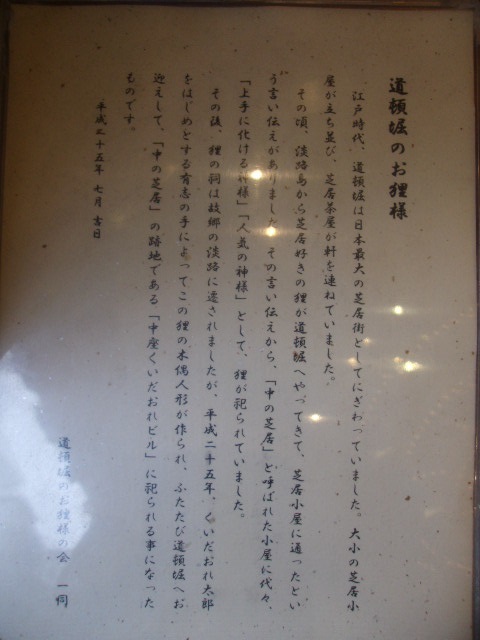 道頓堀のお狸様
江戸時代、道頓堀は日本最大の芝居街としてにぎわっていました。大小の芝居小
屋が立ち並び、芝居茶屋が軒を連ねていました。
その頃、淡路島から芝居好きの狸が道頓堀へやってきて、芝居小屋に通ったとい
う言い伝えがありました。その言い伝えから、「中の芝居」と呼ばれた小屋に代々、
「上手に化ける神様」「人気の神様」として、狸が祀られていました。
その後、狸の祠は故郷の淡路に遷されましたが、平成二十五年、くいだおれ太郎
をはじめとする有志の手によってこの狸の木偶人形が作られ、ふたたび道頓堀へお
迎えして、「中の芝居」の跡地である「中座くいだおれビル」に祀られる事になった
ものです。
平成二十五年 七月 吉日
道頓堀のお狸様の会 一同